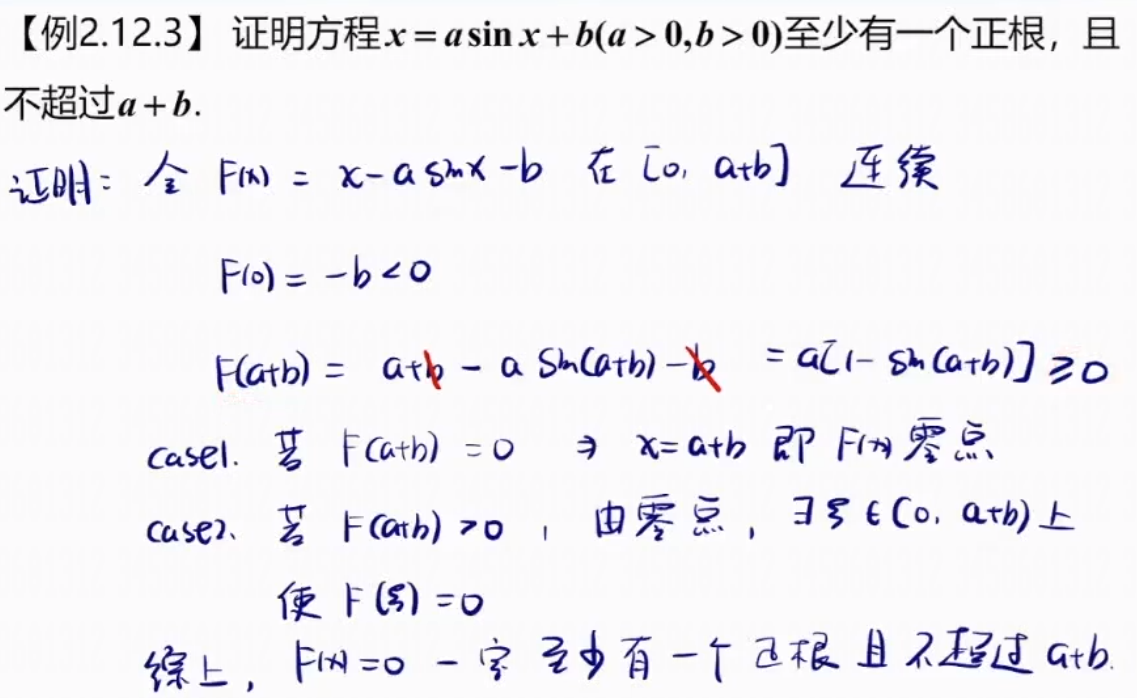 【例2.12.3】 证明方程x = a sin x + b(a > 0, b > 0)至少有一个正根，且
不超过a + b.
证明: 令 F(x) = x - a sinx - b 在 [0, a+b] 连续
F(0) = -b < 0
F(a+b) = a+b - a Sin(a+b) - b = a[1 - sin(a+b)] ≥ 0
case1. 若 F(a+b) = 0 ⇒ x = a+b 即 F(x) 零点
case2. 若 F(a+b) > 0 , 由零点, ∃ ξ ∈ (0, a+b) 上
使 F(ξ) = 0
综上, F(x) = 0 一定 至少有一个正根且不超过 a+b.